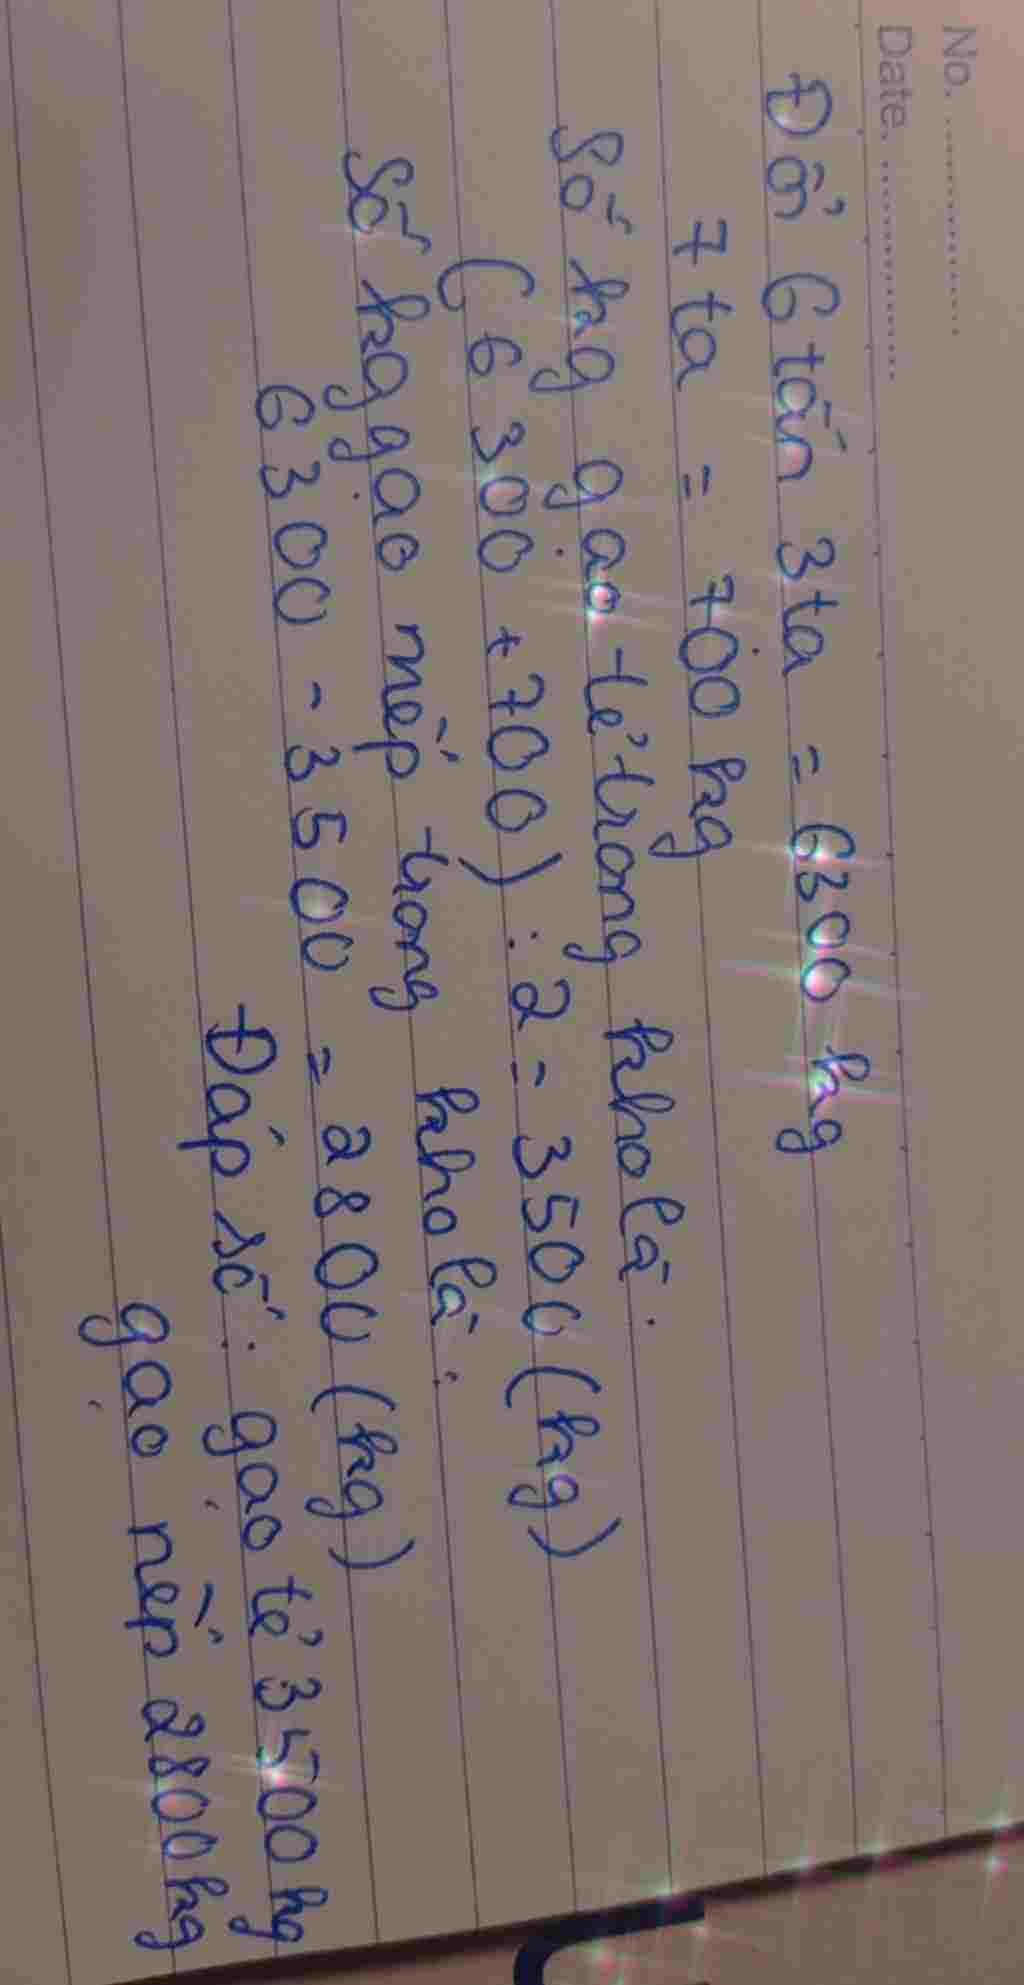 No. ..................
Date. ..................
Đổi 6 tấn 3 ta = 6300 kg
7 ta = 700 kg
Số kg gạo tẻ trong kho là:
( 6 300 + 700 ) : 2 = 3500 (kg)
Số kg gạo nếp trong kho là:
6300 - 3500 = 2800 (kg)
Đáp số: gạo tẻ 3500 kg
gạo nếp 2800 kg